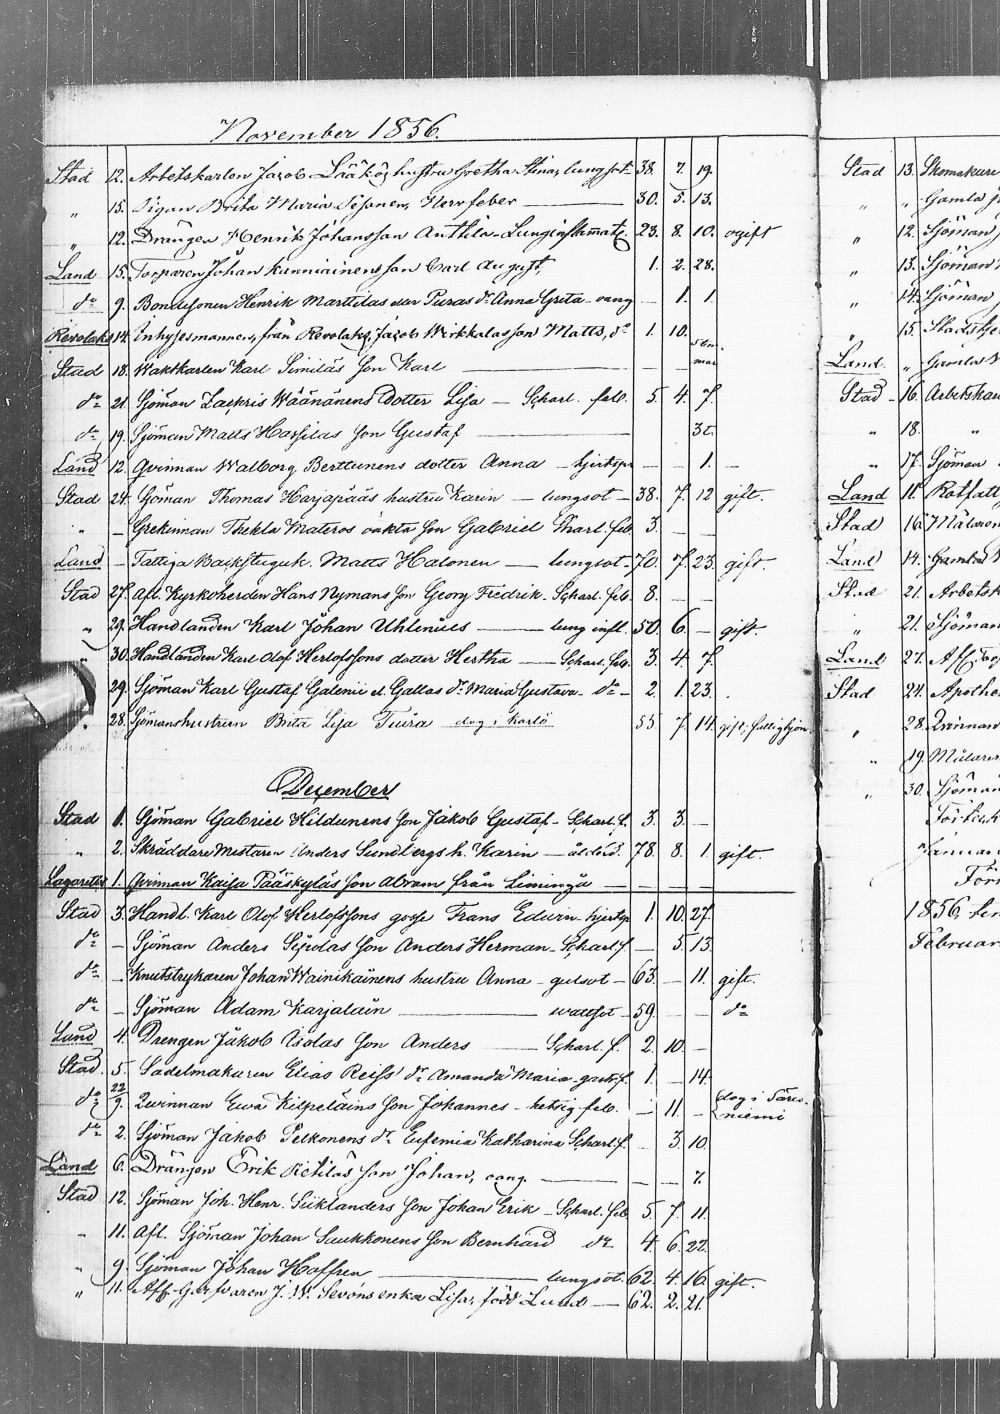 November 1856.
Stad 12. Arbetskarlen Jacob Lääkös hustru Gretha Stina, lungsot 38. 7. 19.
„ 15. Pigan Brita Maria Pesonen, Nerffeber 30. 5. 13.
„ 12. Drängen Henrik Johansson Anttila - Lunginflammat. 23. 8. 10. ogift
Land 15. Torparen Johan Kanniainens son Carl August, 1. 2. 28.
do 9. Bondesonen Henrik Marttilas eller Puras dr Anna Greta - oang — 1. 1.
Revolaks 14. Inhysesmannens, från Revolaks, Jacob Wirkkalas son Matts, do 1. 10.
Stad 18. Waktkarlen Karl Similäs son Karl — — 5 tim mar
do 21. Sjöman Zackris Wäänänens dotter Lisa — Scharl. feb. 5. 4. 7.
do 19. Sjöman Matts Harsilas son Gustaf 3 t.
Land 12. Qvinnan Walborg Berttunens dotter Anna — hjertspr — — 1. —
Stad 24. Sjöman Thomas Harjapääs hustru Karin — lungsot — 38. 7. 12 gift.
„ — Grekinnan Thekla Materos oäkta son Gabriel Skarl. feb. 3. — —
Land — Fattiga Backstuguk. Matts Halonen — lungsot — 70. 7. 23. gift.
Stad 27. Afl. Kyrkoherden Hans Nymans son Georg Fredrik - Scharl. feb. 8. — —
„ 29. Handlanden Karl Johan Uhlenius — lung infl. 50. 6. — gift.
„ 30. Handlanden Karl Olof Herlofssons dotter Hertha — Scharl. feb. 3. 4. 7.
29. Sjöman Karl Gustaf Galenii el. Gallas dr Maria Gustava - do - 2. 1. 23.
28. Sjömanshustrun Brita Lisa Tiura dog i Karlö 55. 7. 14. gift, fattighjon.
December
Stad 1. Sjöman Gabriel Hildunens son Jakob Gustaf - Scharl. f. 3. 3. —
„ 2. Skräddare Mestaren Anders Sundbergs h. Karin — ålderd. 78. 8. 1. gift.
Lazarettet 1. Qvinnan Kaisa Pääskyläs son Abram från Liminga — — —
Stad 3. Handl. Karl Olof Herlofssons gosse Frans Edwin - hjertsp 1. 10. 27.
do — Sjöman Anders Sipolas son Anders Herman - Scharl. f. — 5. 13.
do — Knutstrykaren Johan Wainikainens hustru Anna - gulsot — 63. — 11. gift.
do — Sjöman Adam Karjalain — wattsot — 59. — — do
Land 4. Drengen Jakob Uolas son Anders — Scharl. f. 2. 10. —
Stad. 5. Sadelmakaren Elias Reiss' dr Amanda Maria - gastf. 1. — 14.
do 22/9. Qwinnan Ewa Kilpeläins son Johannes - hetsig feb. — 11. — dog i Pävesniemi
do 2. Sjöman Jakob Pelkonens dr Eufemia Katharina Scharl. f. — 3. 10.
Land 6. Drängen Erik Pietiläs son Johan, oang. — — 7.
Stad 12. Sjöman Joh. Henr. Siiklanders son Johan Erik - Scharl. feb 5. 7. 11.
„ 11. Afl. Sjöman Johan Saukkonens son Bernhard do 4. 6. 22.
„ 9. Sjöman Johan Hoffren — lungsot. 62. 4. 16. gift.
„ 11. Aff. Garfvaren J. W. Sevóns enka Lisa, född Lund — 62. 2. 21.
Stad 13. Skomakare
„ „ Gamla
„ 12. Sjöman
„ 13. Sjöman
„ 14. Sjöman
„ 15.
Land. „ Gamla
Stad 16. Arbetskar
„ 18. „
„ 17. Sjöman
Land 11. Rotfatt
Stad 16.
Land 14. Gamla
Stad 21. Arbetsk
„ 21. Sjöman
Land 27. Aff. Tor
Stad 24. Apothe
„ 28. Qvinnan
„ 19. Målare
„ 30. Sjöman
Januar
1856,
Februar